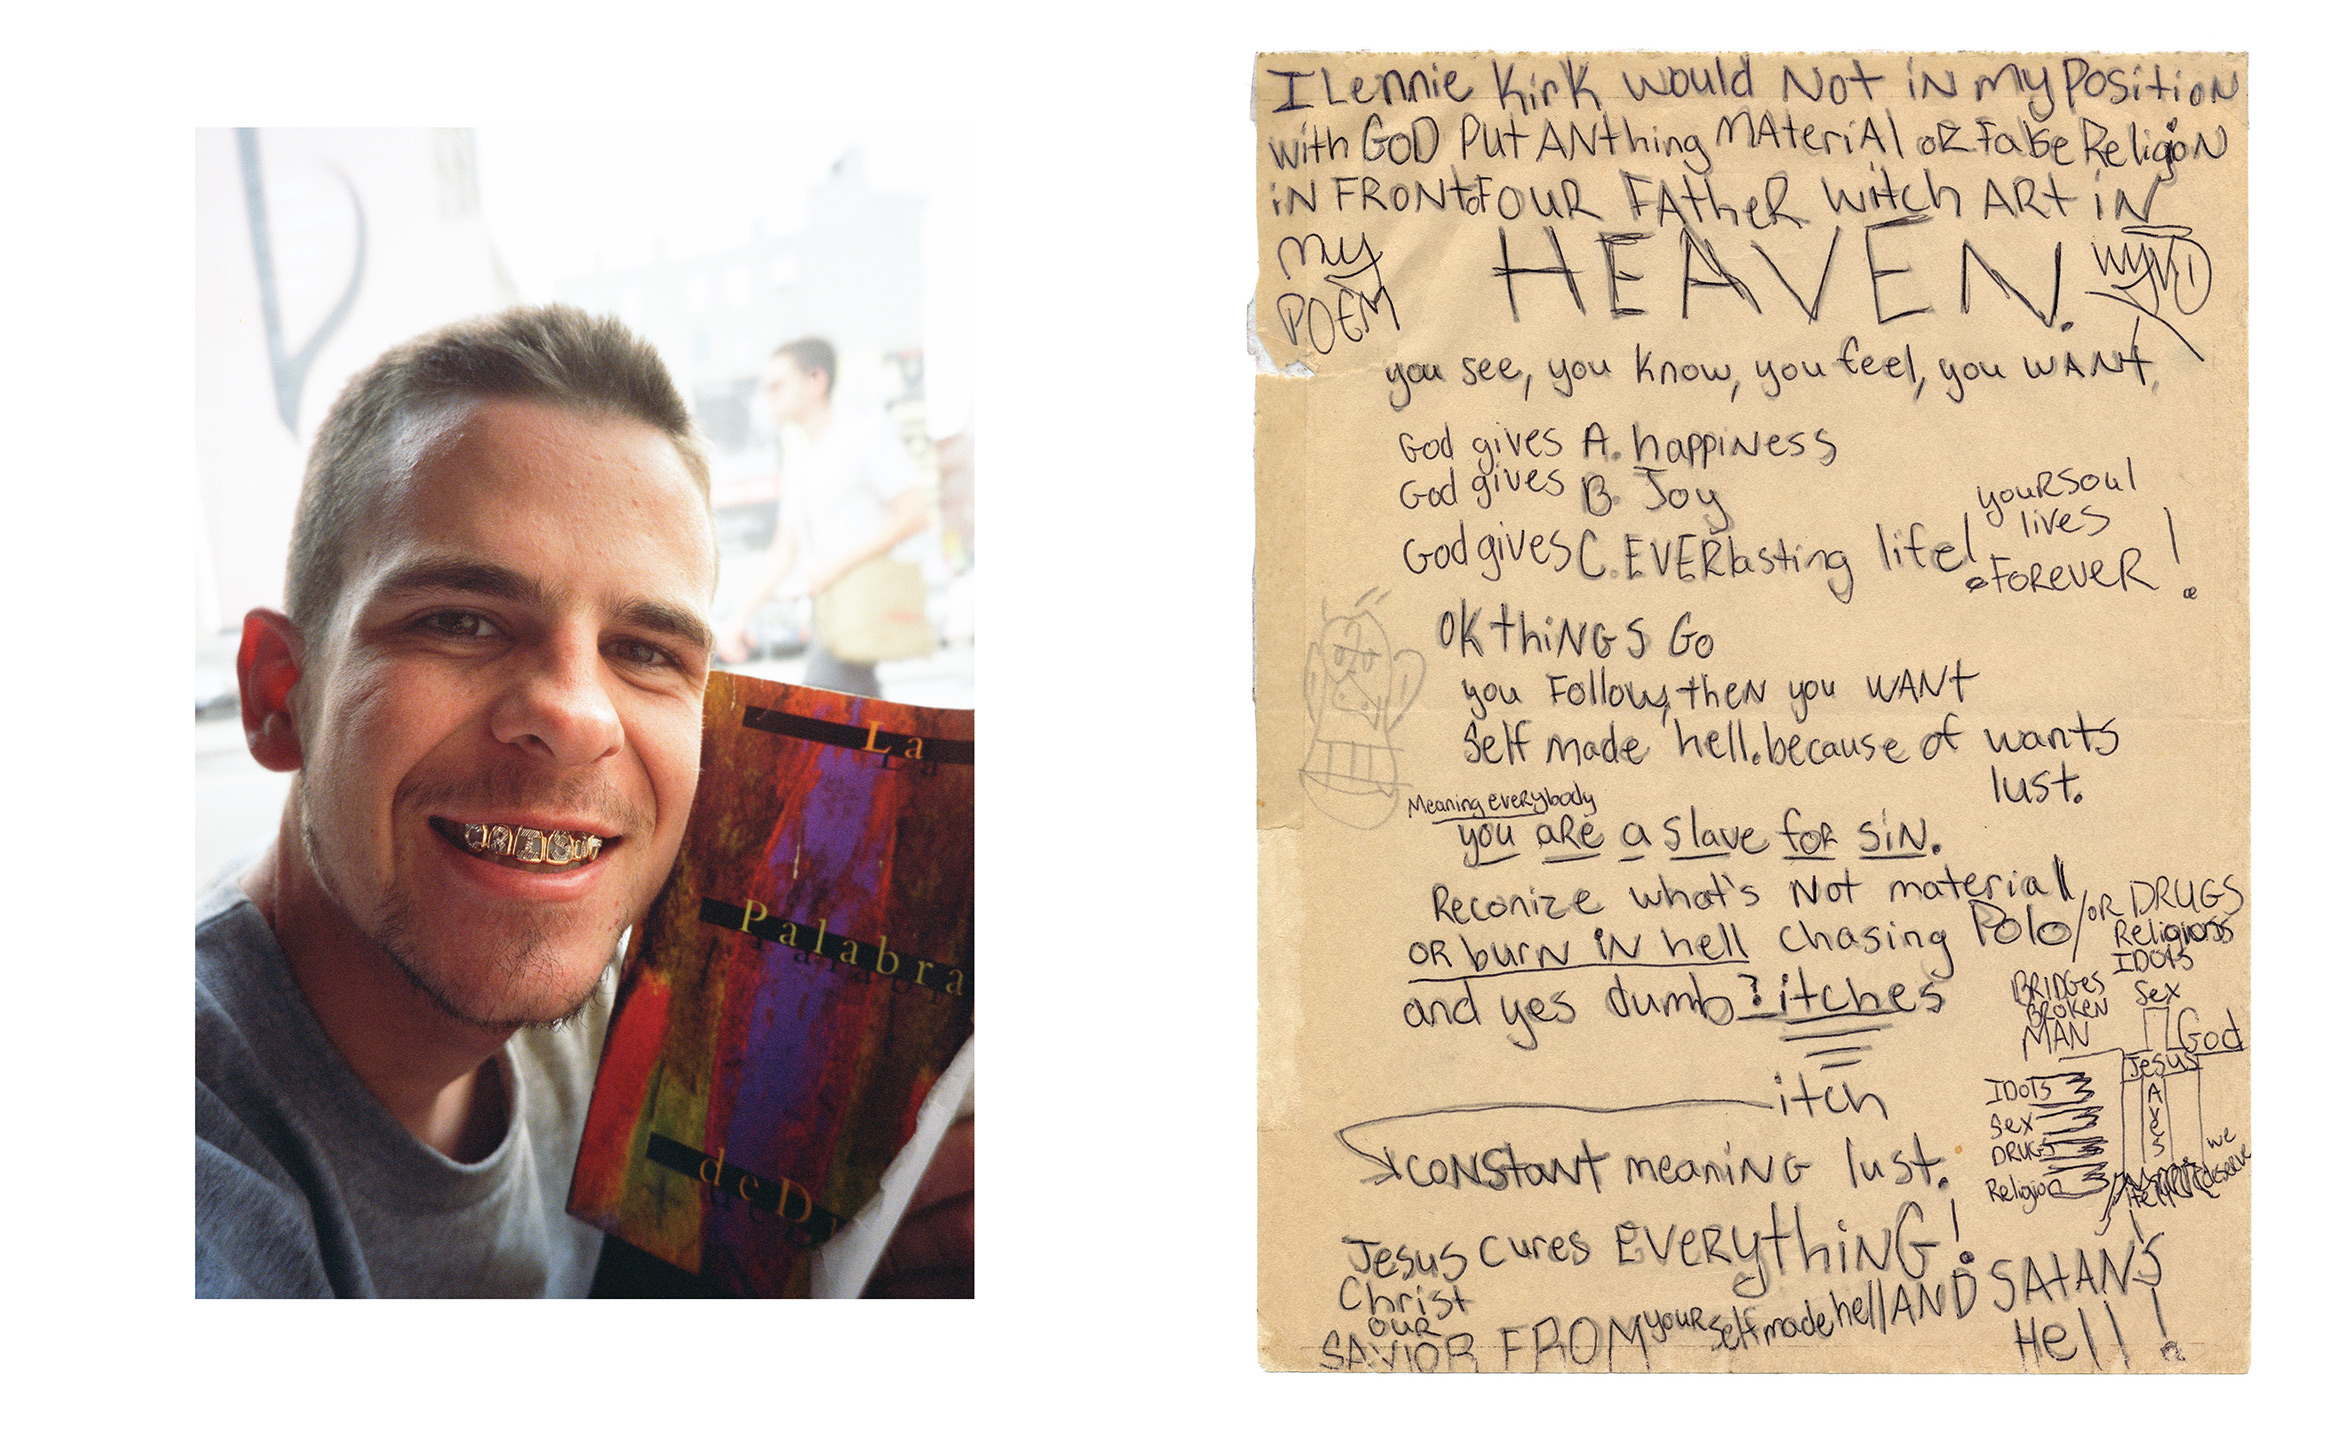 La
Palabra
de D
I Lennie Kirk would Not in my Position
with GOD Put ANthing MAteriAl oR False Religion
iN FRONt oF OUR FAtheR witch ARt iN
HEAVEN.
my
POEM
you see, you know, you feel, you WANt,
God gives A. happiNess
God gives B. Joy
God gives C. EVERlasting life!
youR Soul
lives
FoReveR!
OK thiNGS Go
you Follow, theN you WANt
Self made hell. because of wants
lust.
Meaning eveRybody
you aRe a slave foR siN.
Reconize what's Not material
OR burN iN hell chasing Polo/oR DRUGS
Religions
IDOtS
Sex
and yes dumb ?itches
BRiDGes
BRoKeN
MAN
God
Jesus
IDOTS
Sex
DRUGS
Religion
we
deserve
itch
CONStaNt meaniNG lust.
Jesus Cures EVERythiNG!
Christ
OUR
SAVIOR FROM youR self made hell AND SAtAN'S
Hell!